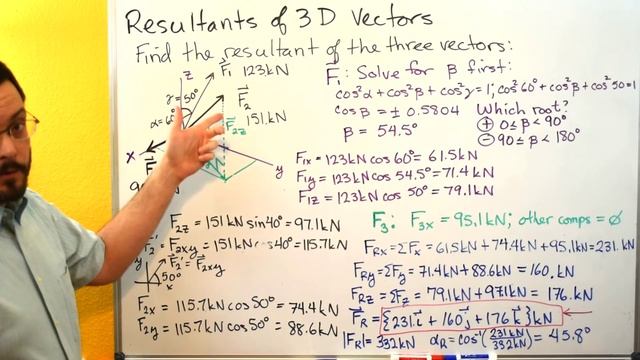 Resultants of 3D Vectors
Find the resultant of the three vectors:
z
F₁ 123kN
γ=50°
α=60°
F₂
151kN
F₂z
x
y
F₁: Solve for β first:
cos²α+cos²β+cos²γ=1; cos²60°+cos²β+cos²50=1
cosβ = ± 0.5804
Which root?
β = 54.5°
⊕ 0≤β<90°
⊖ 90≤β<180°
F₁x = 123kN cos 60° = 61.5kN
F₁y = 123kN cos 54.5° = 71.4kN
F₁z = 123kN cos 50° = 79.1kN
F₂z = 151kN sin40° = 97.1kN
F₂' = F₂xy = 151kN cos40° = 115.7kN
y
F₂' = F₂xy
50°
x
F₂x = 115.7kN cos50° = 74.4kN
F₂y = 115.7kN cos50° = 88.6kN
F₃: F₃x = 95.1kN; other comps = ∅
FRx = ΣFx = 61.5kN+74.4kN+95.1kN=231. kN
FRy = ΣFy = 71.4kN+88.6kN = 160. kN
FRz = ΣFz = 79.1kN+97.1kN = 176. kN
FR = {231i+160j+176k}kN
|FR|= 332kN αR = cos⁻¹(231kN/332kN) = 45.8°